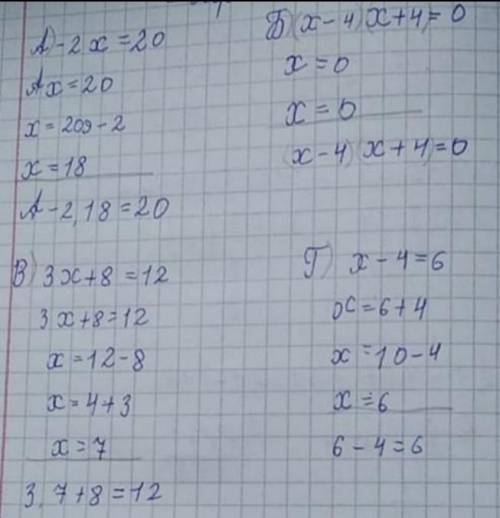 А) -2x = 20
Ax = 20
x = 20 - 2
x = 18
A - 2, 18 = 20
Б) (x - 4) (x + 4) = 0
x = 0
x = 0
(x - 4) (x + 4) = 0
В) 3x + 8 = 12
3x + 8 = 12
x = 12 - 8
x = 4 + 3
x = 7
3, 7 + 8 = 12
Г) x - 4 = 6
x = 6 + 4
x = 10 - 4
x = 6
6 - 4 = 6